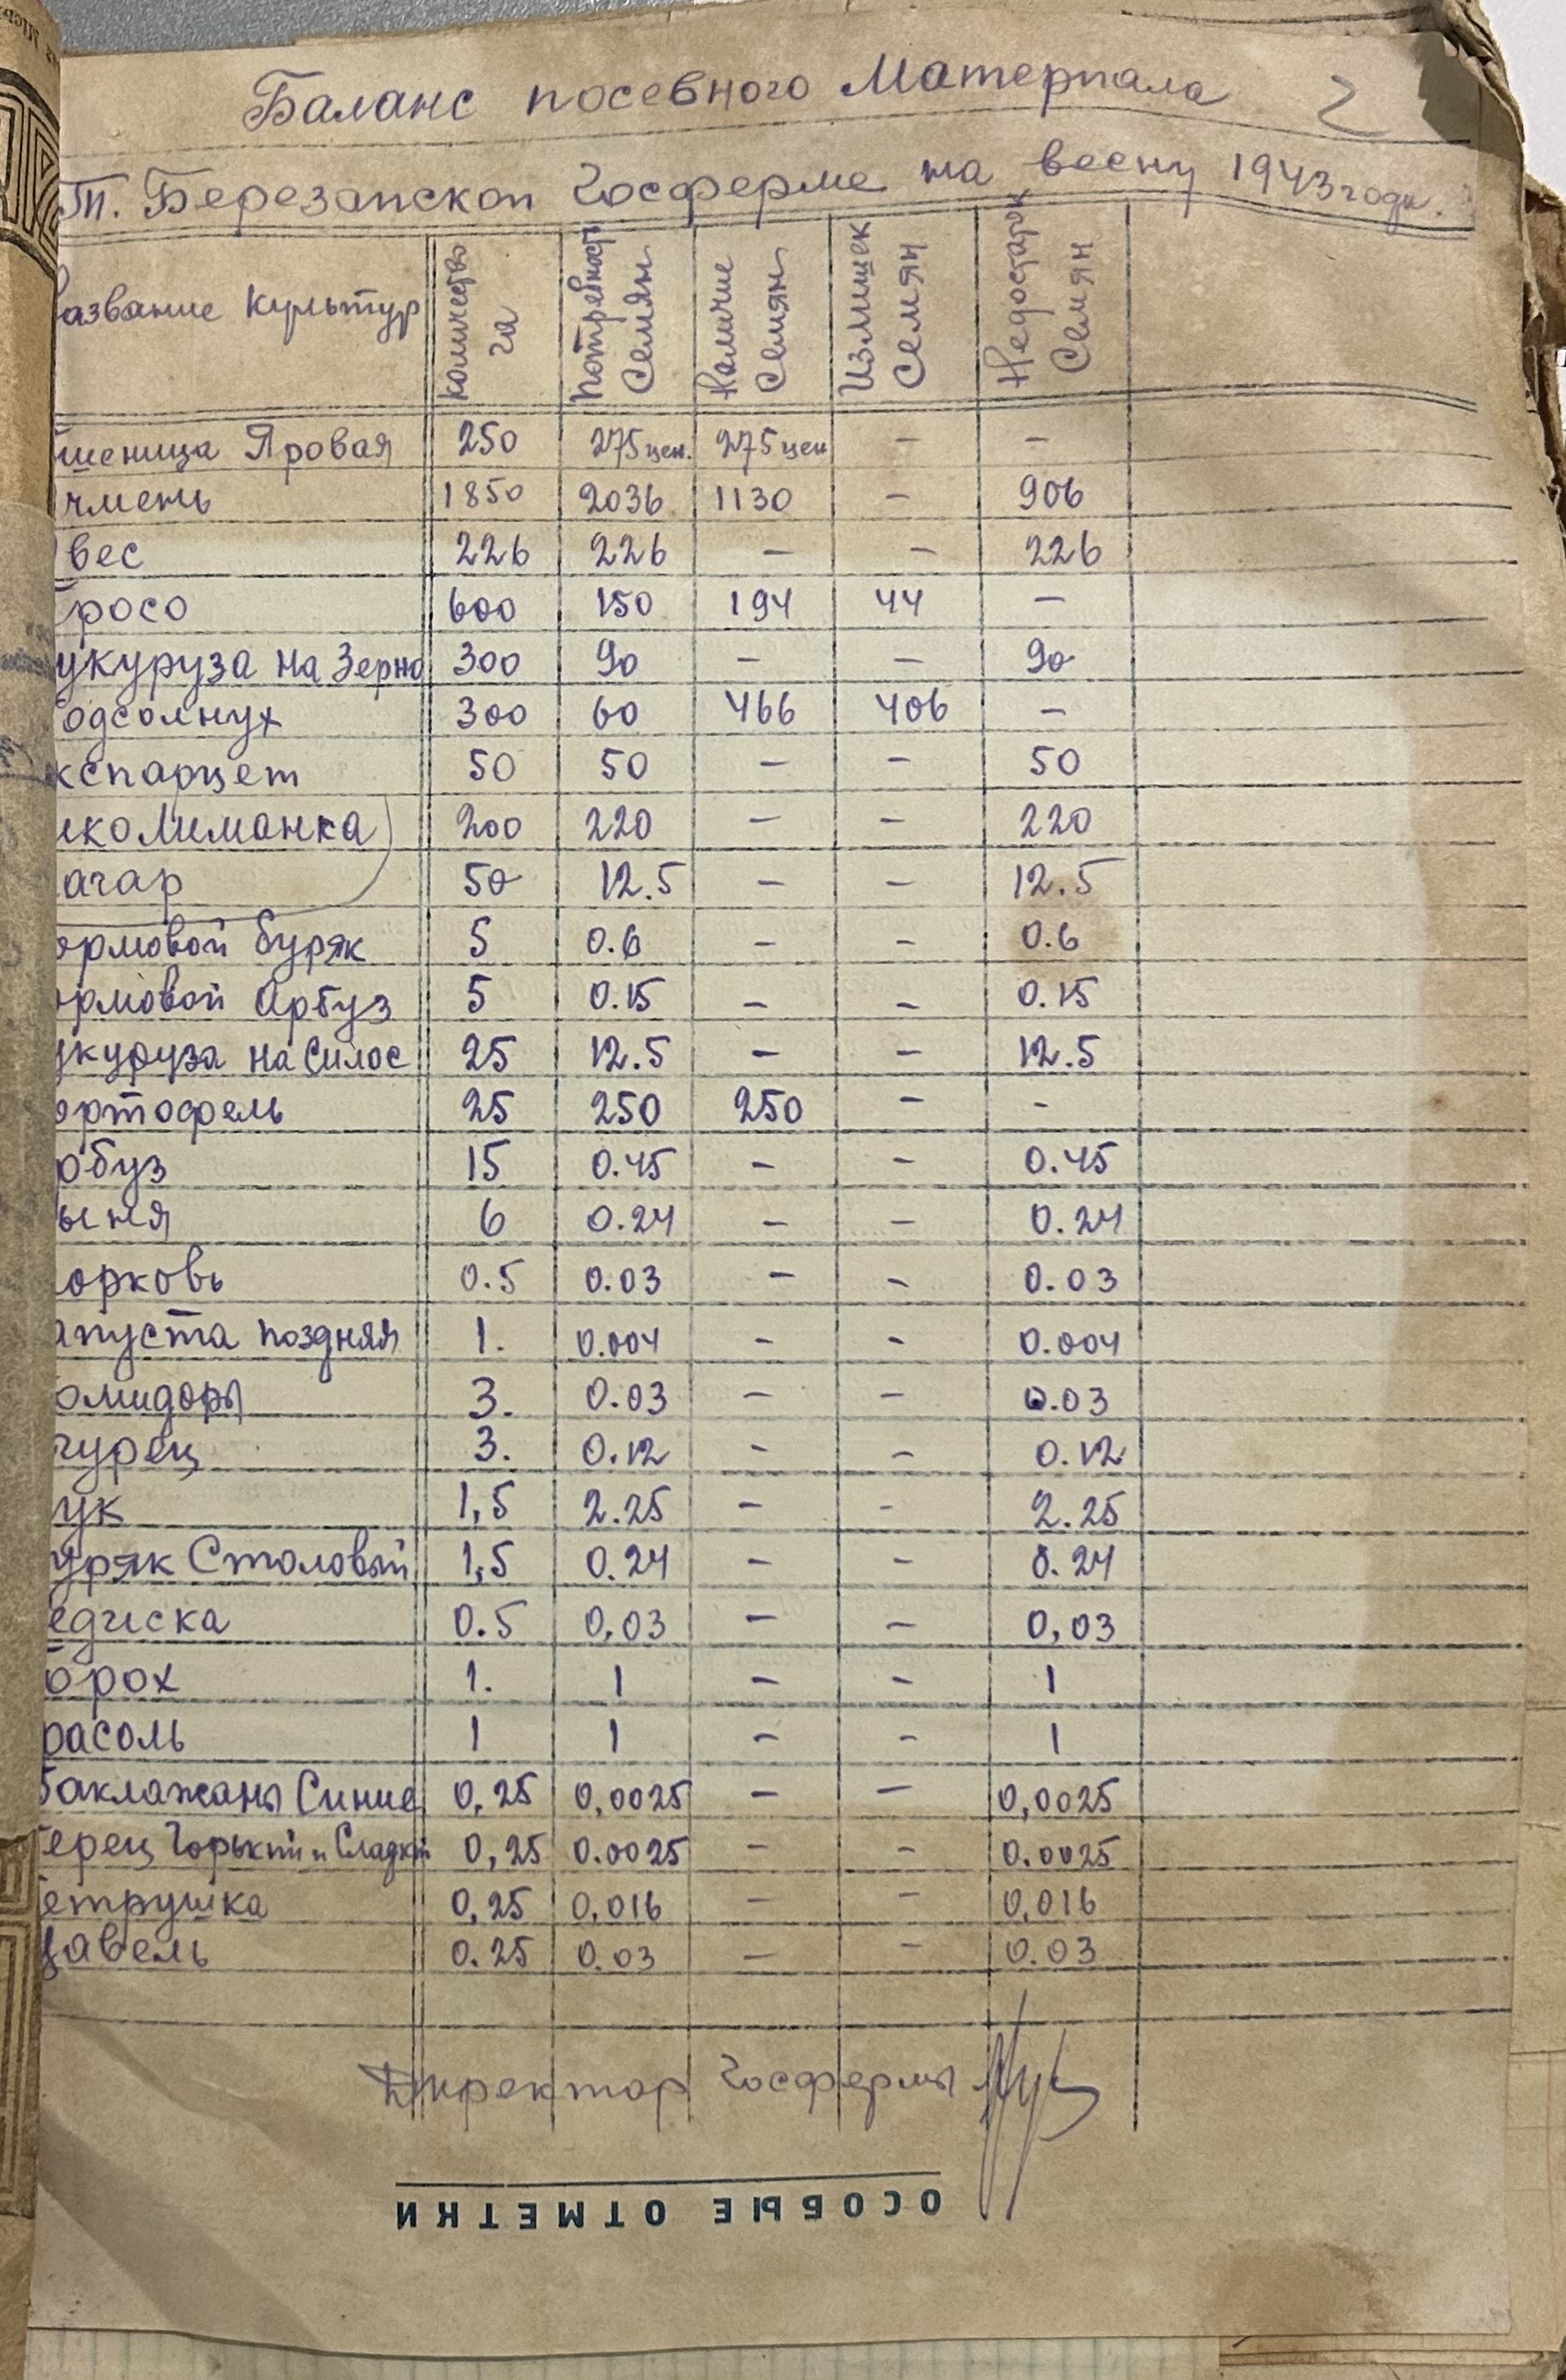 Баланс посевного Материала 2
т. Березанской Госферме на весну 1943 года.
азвание культур | количество га | потребность Семян | Наличие Семян | Излишек Семян | Недостаток Семян
шеница Яровая 250 275 цен. 275 цен — —
чмень 1850 2036 1130 — 906
вес 226 226 — — 226
росо 600 150 194 44 —
укуруза на Зерно 300 90 — — 90
одсолнух 300 60 466 406 —
кспарцет 50 50 — — 50
ико Лиманка 200 220 — — 220
агар 50 12.5 — — 12.5
ормовой буряк 5 0.6 — — 0.6
ормовой Арбуз 5 0.15 — — 0.15
укуруза на Силос 25 12.5 — — 12.5
ортофель 25 250 250 — -
рбуз 15 0.45 — — 0.45
ыня 6 0.24 — — 0.24
орковь 0.5 0.03 — — 0.03
апуста поздняя 1. 0.004 — — 0.004
омидоры 3. 0.03 — — 0.03
гурец 3. 0.12 — — 0.12
ук 1,5 2.25 — - 2.25
уряк Столовый 1,5 0.24 — — 0.24
едиска 0.5 0,03 — — 0,03
орох 1. 1 — — 1
расоль 1 1 — — 1
баклажаны Синие 0,25 0,0025 — — 0,0025
ерец Горький и Сладкий 0,25 0.0025 — — 0.0025
етрушка 0,25 0,016 — — 0,016
авель 0.25 0.03 — — 0.03
Директор Госфермы
ОСОБЫЕ ОТМЕТКИ